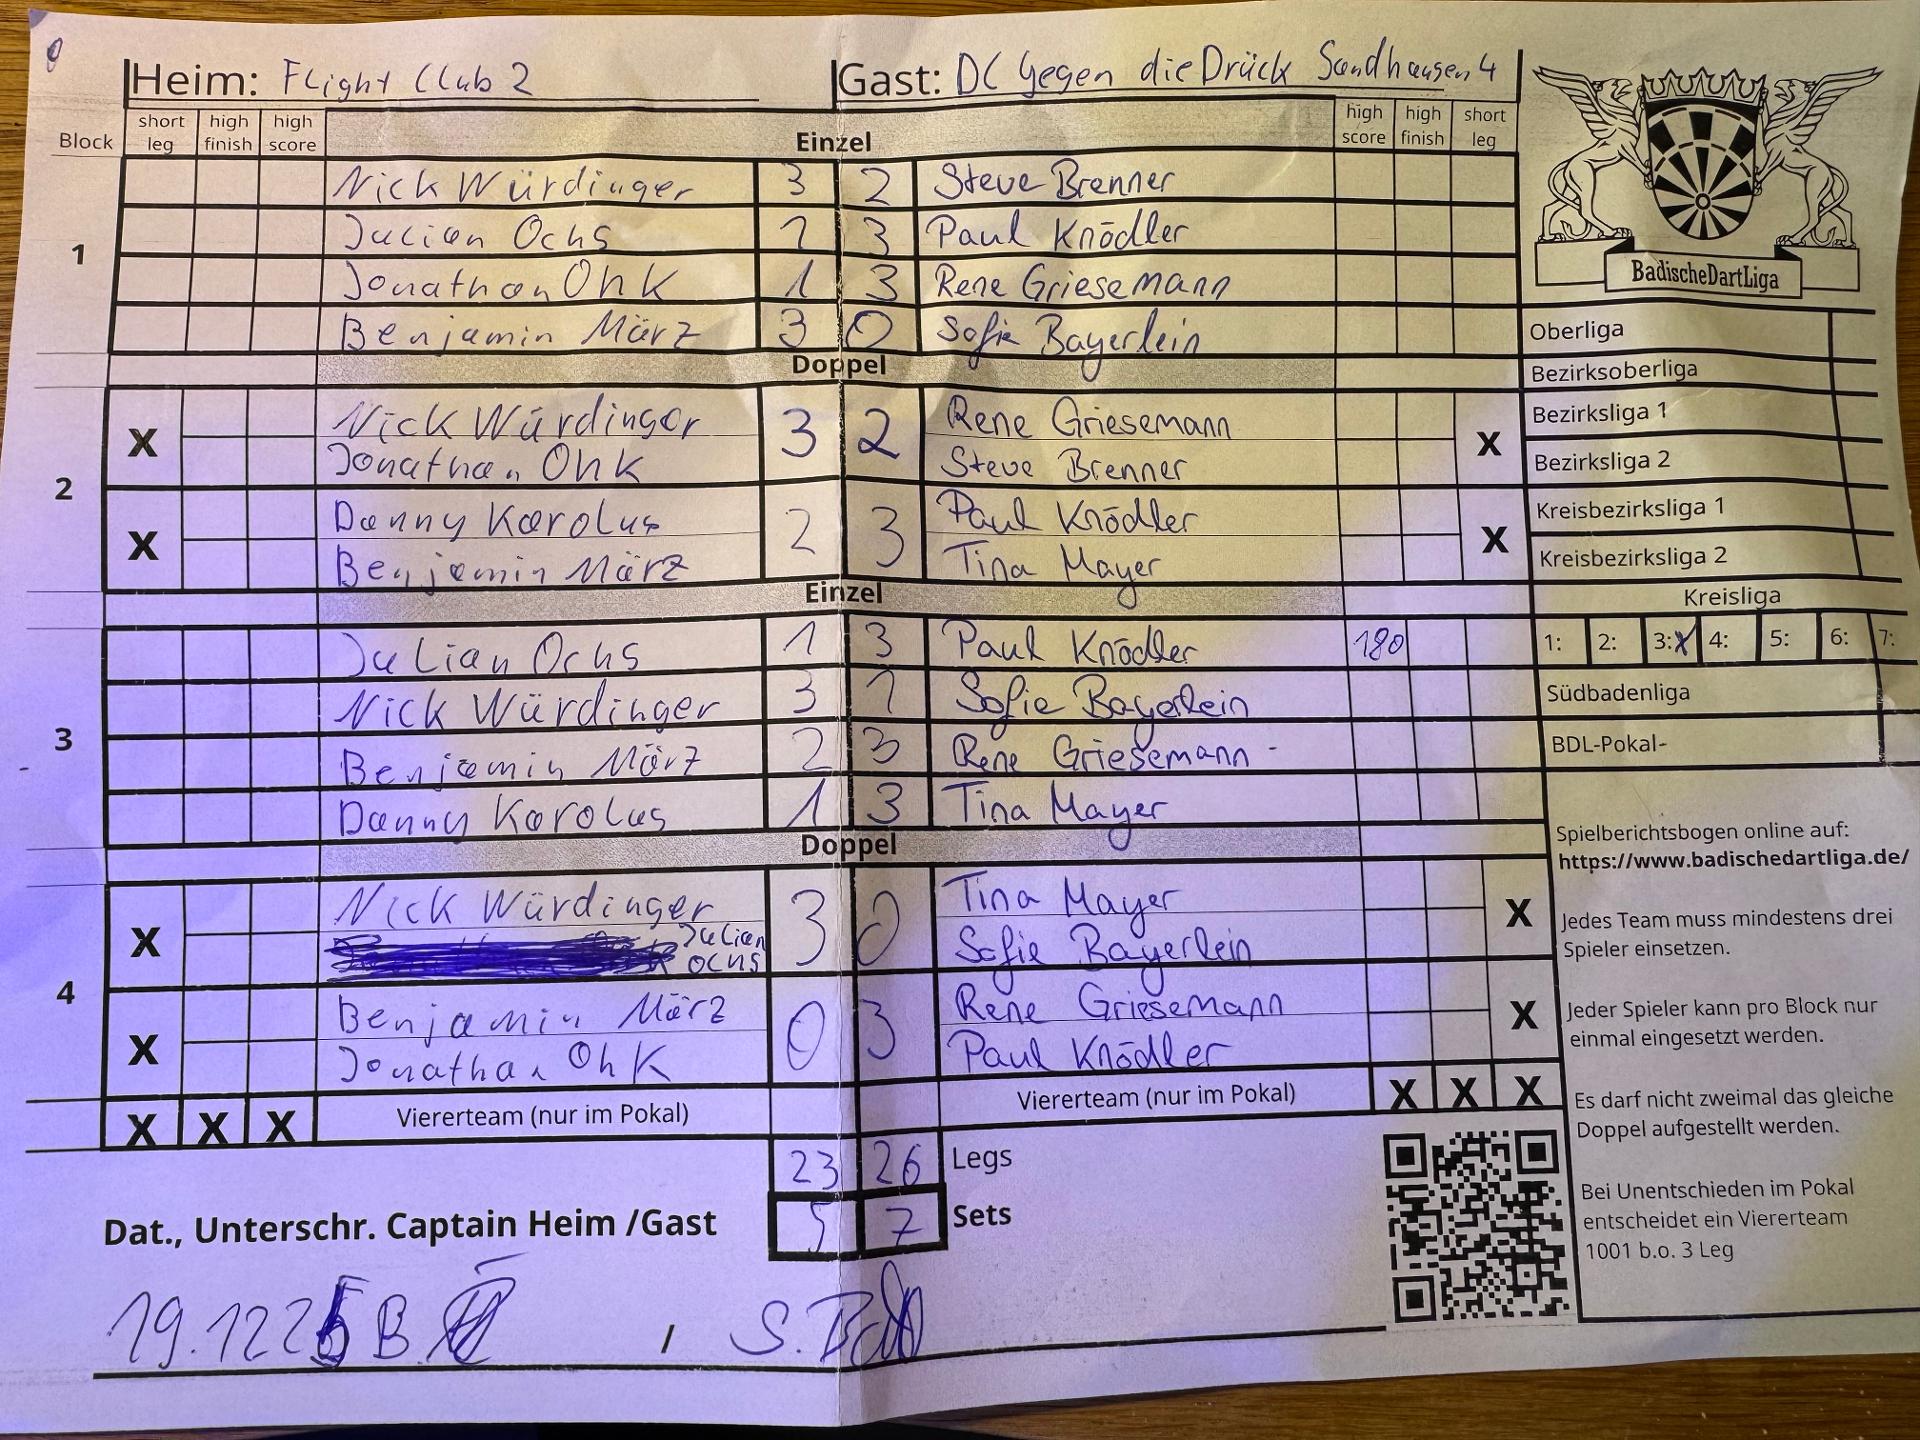 Heim: Flight Club 2 Gast: DC Gegen die Drück Sandhausen 4
Block short leg high finish high score Einzel high score high finish short leg
1
Nick Würdinger 3 2 Steve Brenner
Julian Ochs 1 3 Paul Knödler
Jonathan Ohk 1 3 Rene Griesemann
Benjamin März 3 0 Sofie Bayerlein
Doppel
2
X Nick Würdinger 3 2 Rene Griesemann X
Jonathan Ohk Steve Brenner
X Danny Karolus 2 3 Paul Knödler X
Benjamin März Tina Mayer
Einzel
3
Julian Ochs 1 3 Paul Knödler 180
Nick Würdinger 3 1 Sofie Bayerlein
Benjamin März 2 3 Rene Griesemann -
Danny Karolus 1 3 Tina Mayer
Doppel
4
X Nick Würdinger 3 0 Tina Mayer X
Julian Ochs Sofie Bayerlein
X Benjamin März 0 3 Rene Griesemann X
Jonathan Ohk Paul Knödler
X X X Viererteam (nur im Pokal) Viererteam (nur im Pokal) X X X
23 26 Legs
5 7 Sets
Dat., Unterschr. Captain Heim /Gast
19.12 25 B. / S.
BadischeDartLiga
Oberliga
Bezirksoberliga
Bezirksliga 1
Bezirksliga 2
Kreisbezirksliga 1
Kreisbezirksliga 2
Kreisliga
1: 2: 3: X 4: 5: 6: 7:
Südbadenliga
BDL-Pokal-
Spielberichtsbogen online auf:
https://www.badischedartliga.de/
Jedes Team muss mindestens drei
Spieler einsetzen.
Jeder Spieler kann pro Block nur
einmal eingesetzt werden.
Es darf nicht zweimal das gleiche
Doppel aufgestellt werden.
Bei Unentschieden im Pokal
entscheidet ein Viererteam
1001 b.o. 3 Leg